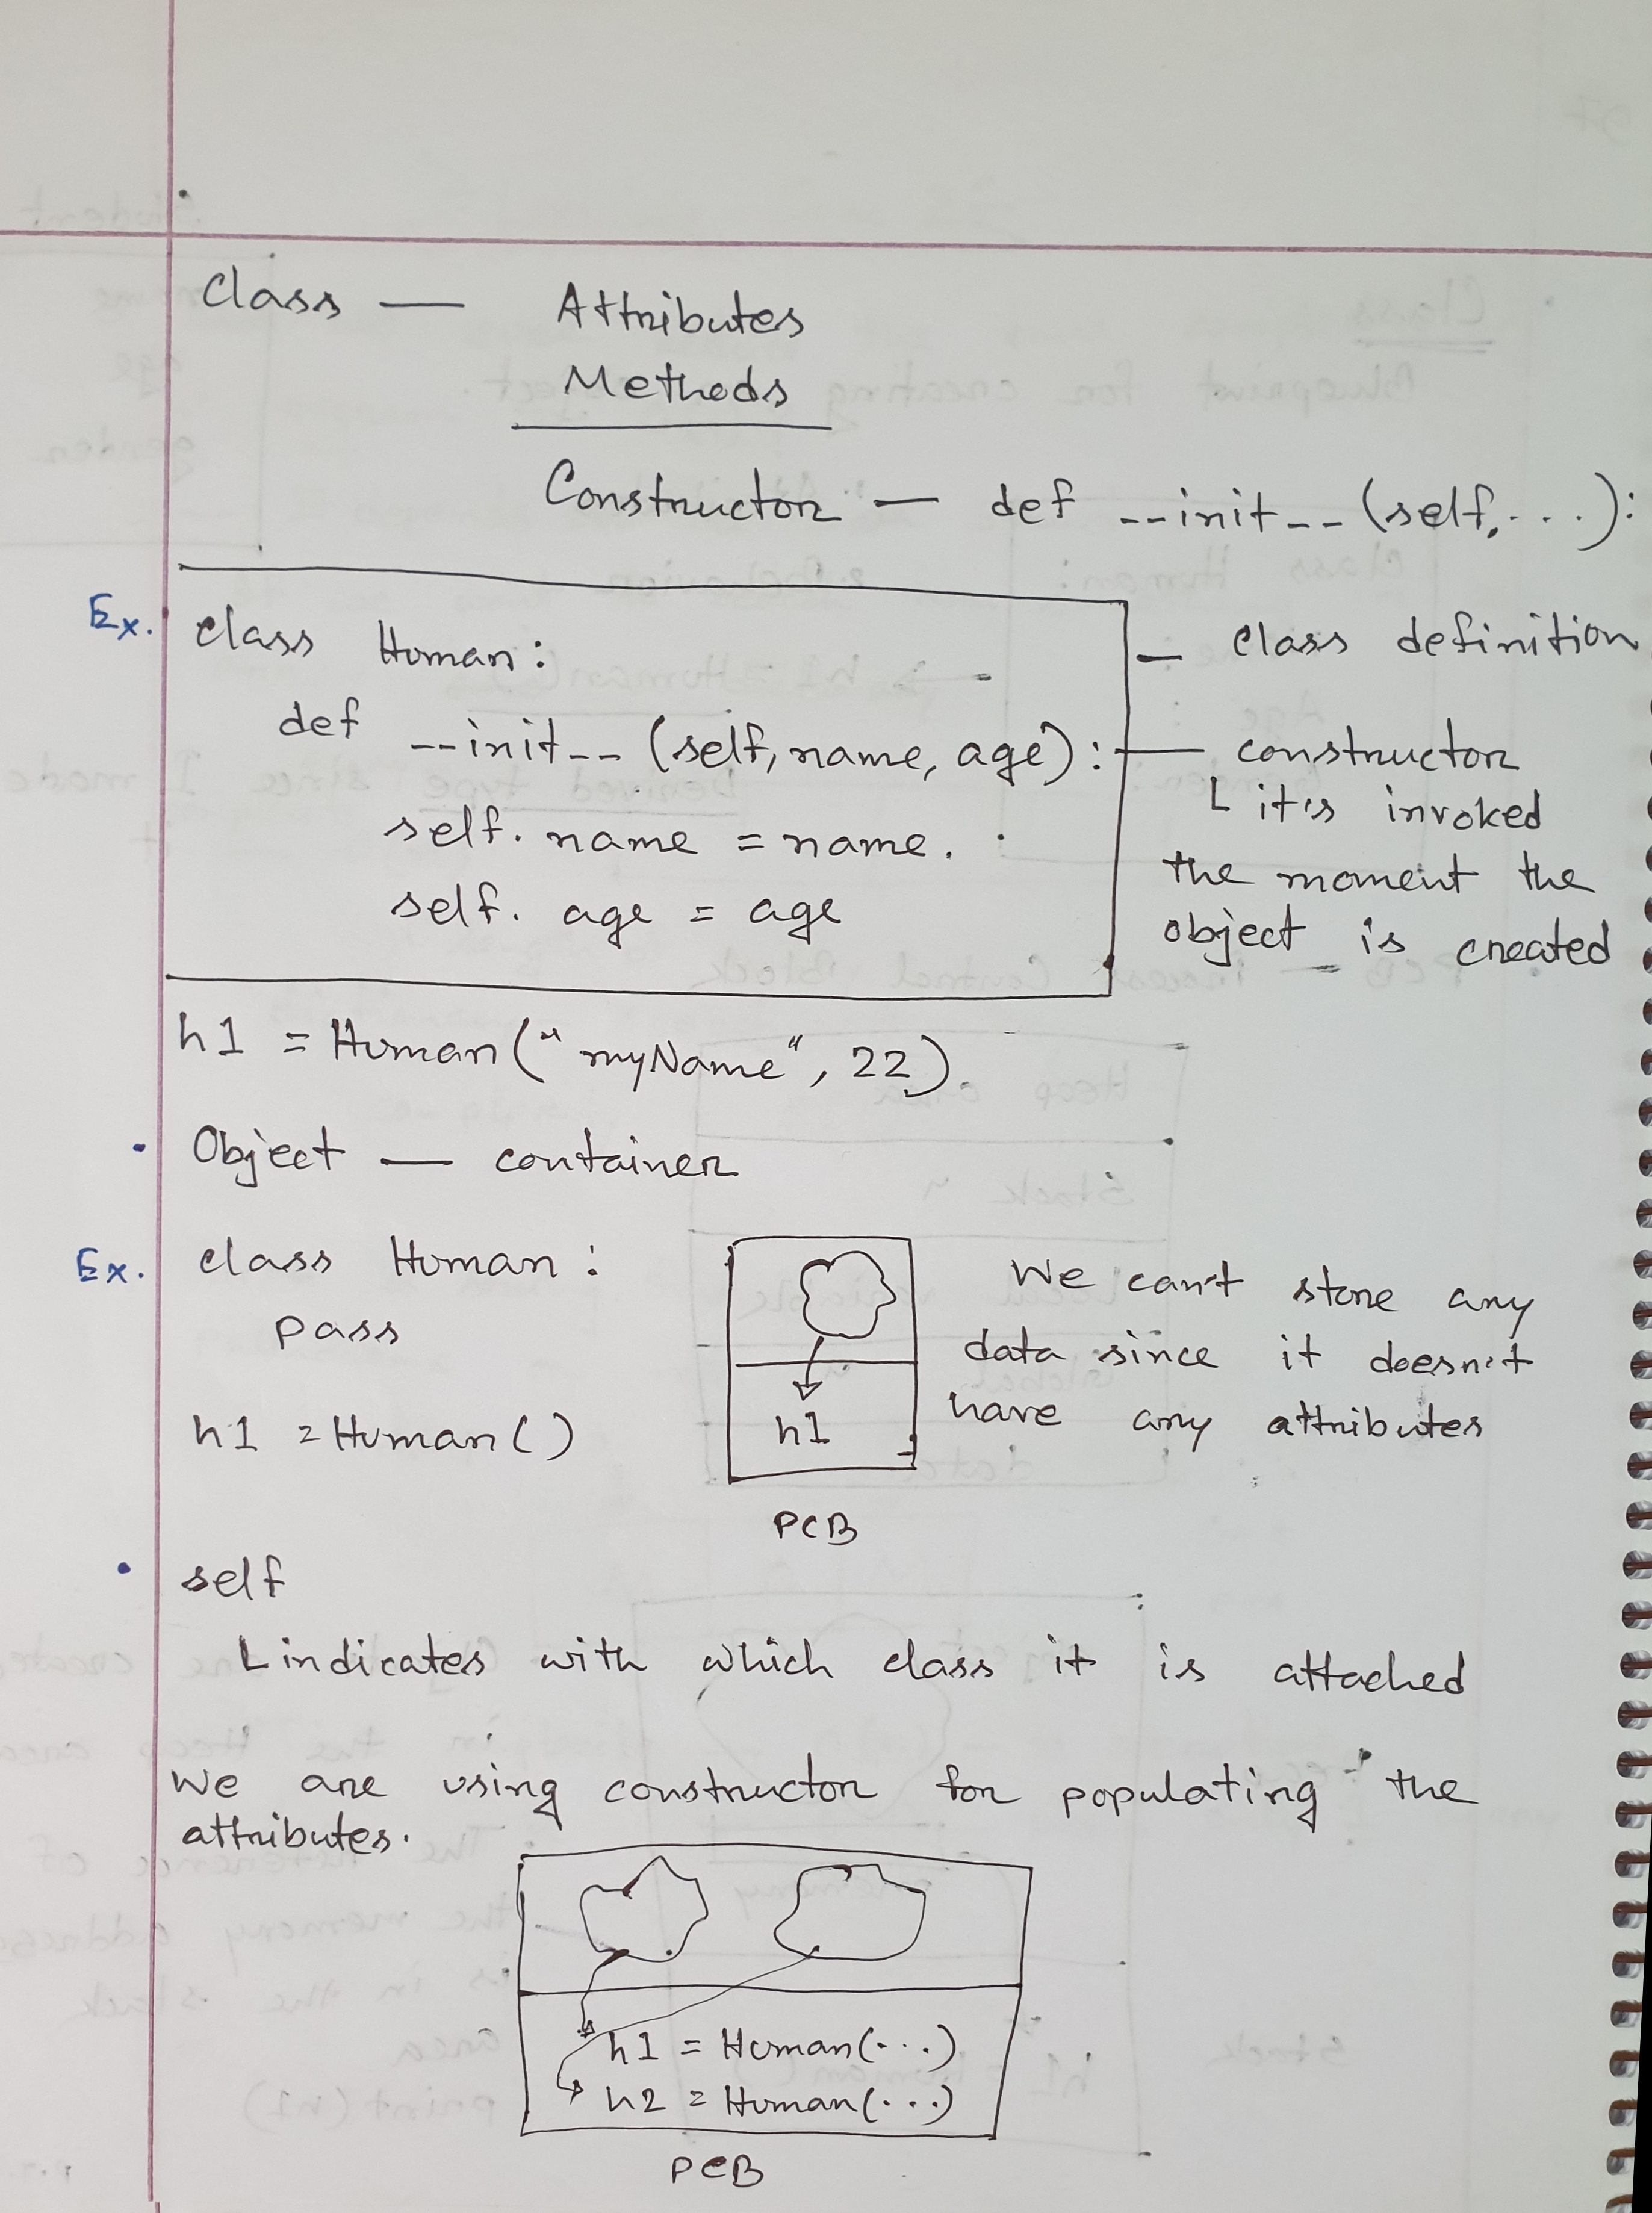 Class — Attributes
Methods
Constructor — def __init__(self, ...):
Ex. class Human: — class definition
def __init__ (self, name, age): — constructor
self.name = name.
self.age = age
it's invoked
the moment the
object is created
h1 = Human("myName", 22).
• Object — container
Ex. class Human:
pass
h1 = Human()
h1
PCB
We can't store any
data since it doesn't
have any attributes
• self
indicates with which class it is attached
We are using constructor for populating the
attributes.
h1 = Human(...)
h2 = Human(...)
PCB